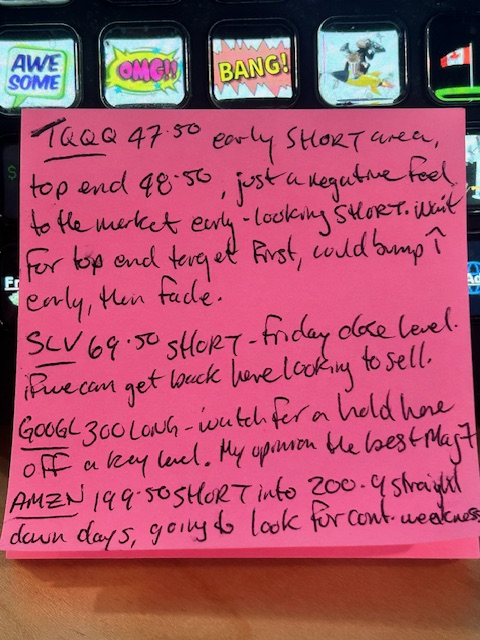 AWE
SOME
OMG!!
BANG!
TQQQ 47.50 early SHORT area,
top end 48.50, just a negative feel
to the market early - looking SHORT. Wait
for top end target first, could bump ↑
early, then fade.
SLV 69.50 SHORT - Friday close level.
if we can get back here looking to sell.
GOOGL 300 LONG - watch for a hold here
off a key level. My opinion the best Mag 7
AMZN 199.50 SHORT into 200. 9 straight
down days, going to look for cont. weakness